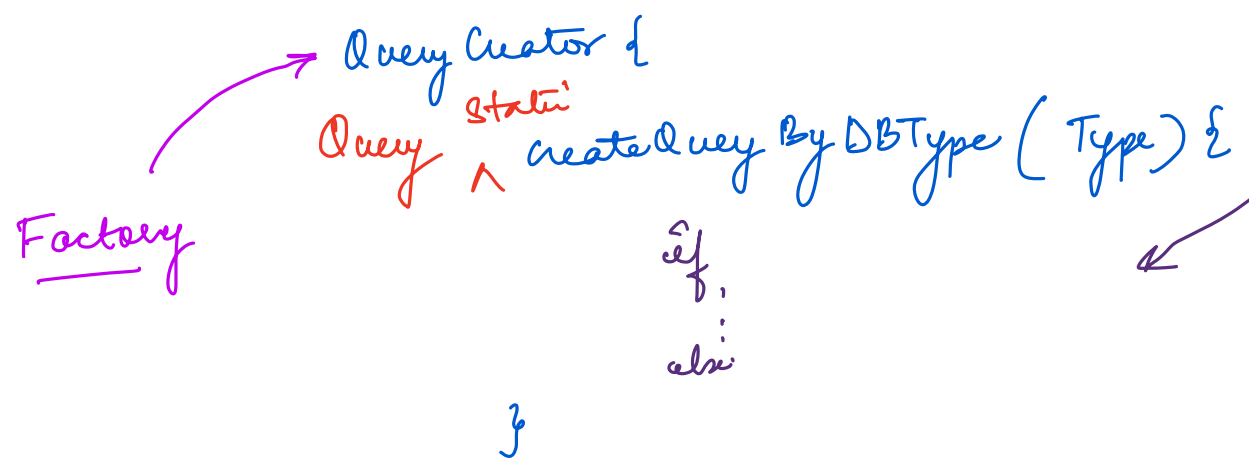 QueryCreator {
static
Query ^ createQueryByDBType ( Type) {
Factory
if
:
else
}